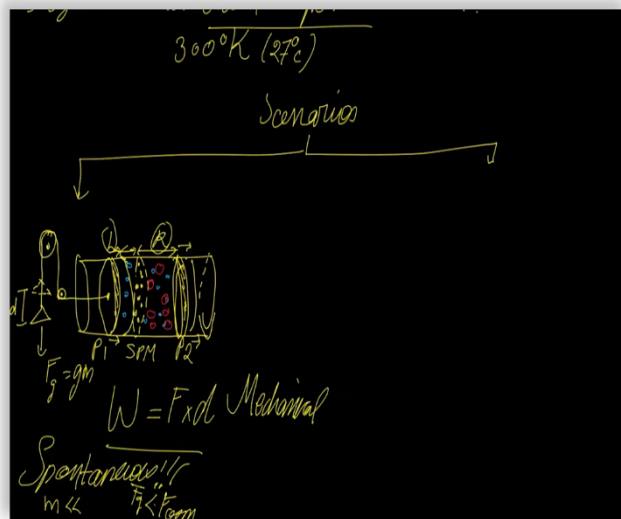 300°K (27°c)
Scenarios
L R
d
P1 SPM P2
Fg = gm
W = F x d Mechanical
Spontaneous!!!
m<< Fg < Fosm